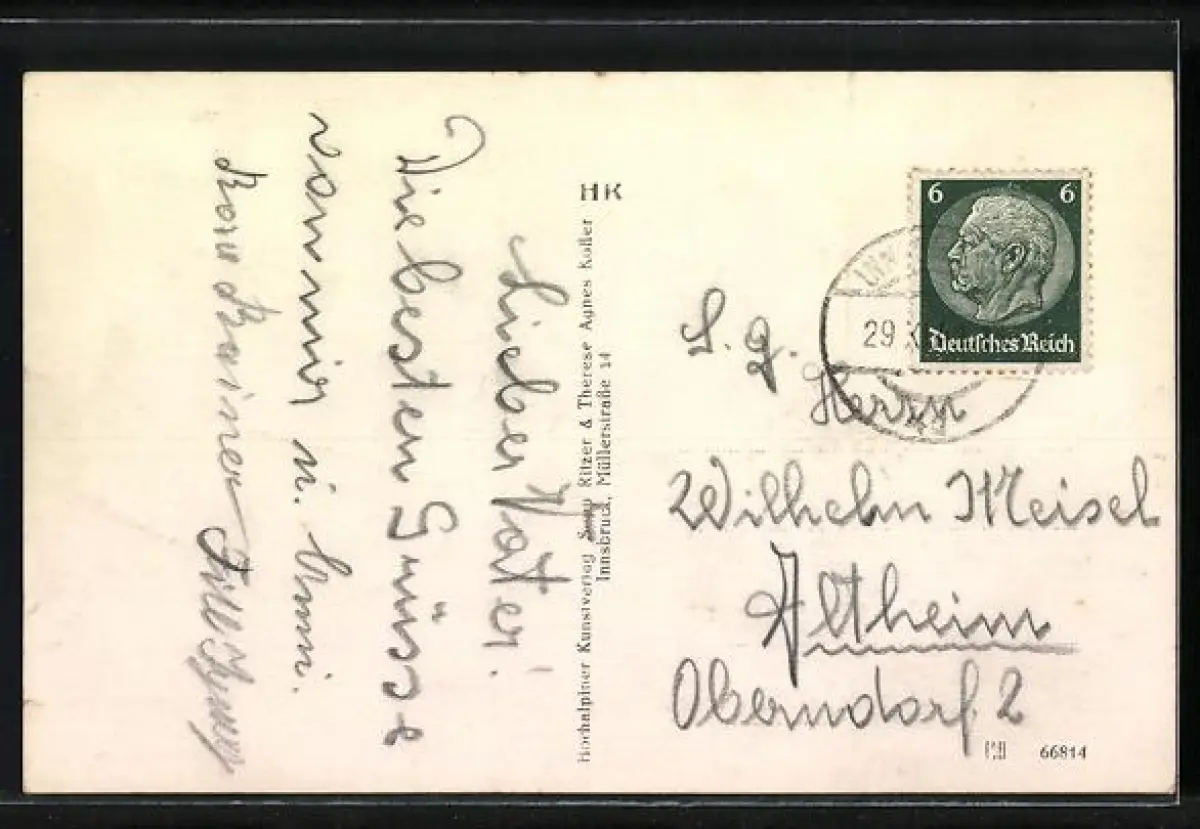 Lieber Vater!
Die besten Grüsse
von mir u. Ammi.
HK
Hochalpiner Kunstverlag Ritzer & Therese Agnes Koller
Innsbruck, Müllerstraße 14
6 6
Deutsches Reich
INN
29 X
S. g.
Herrn
Wilhelm Meisel
Altheim
Oberndorf 2
66814